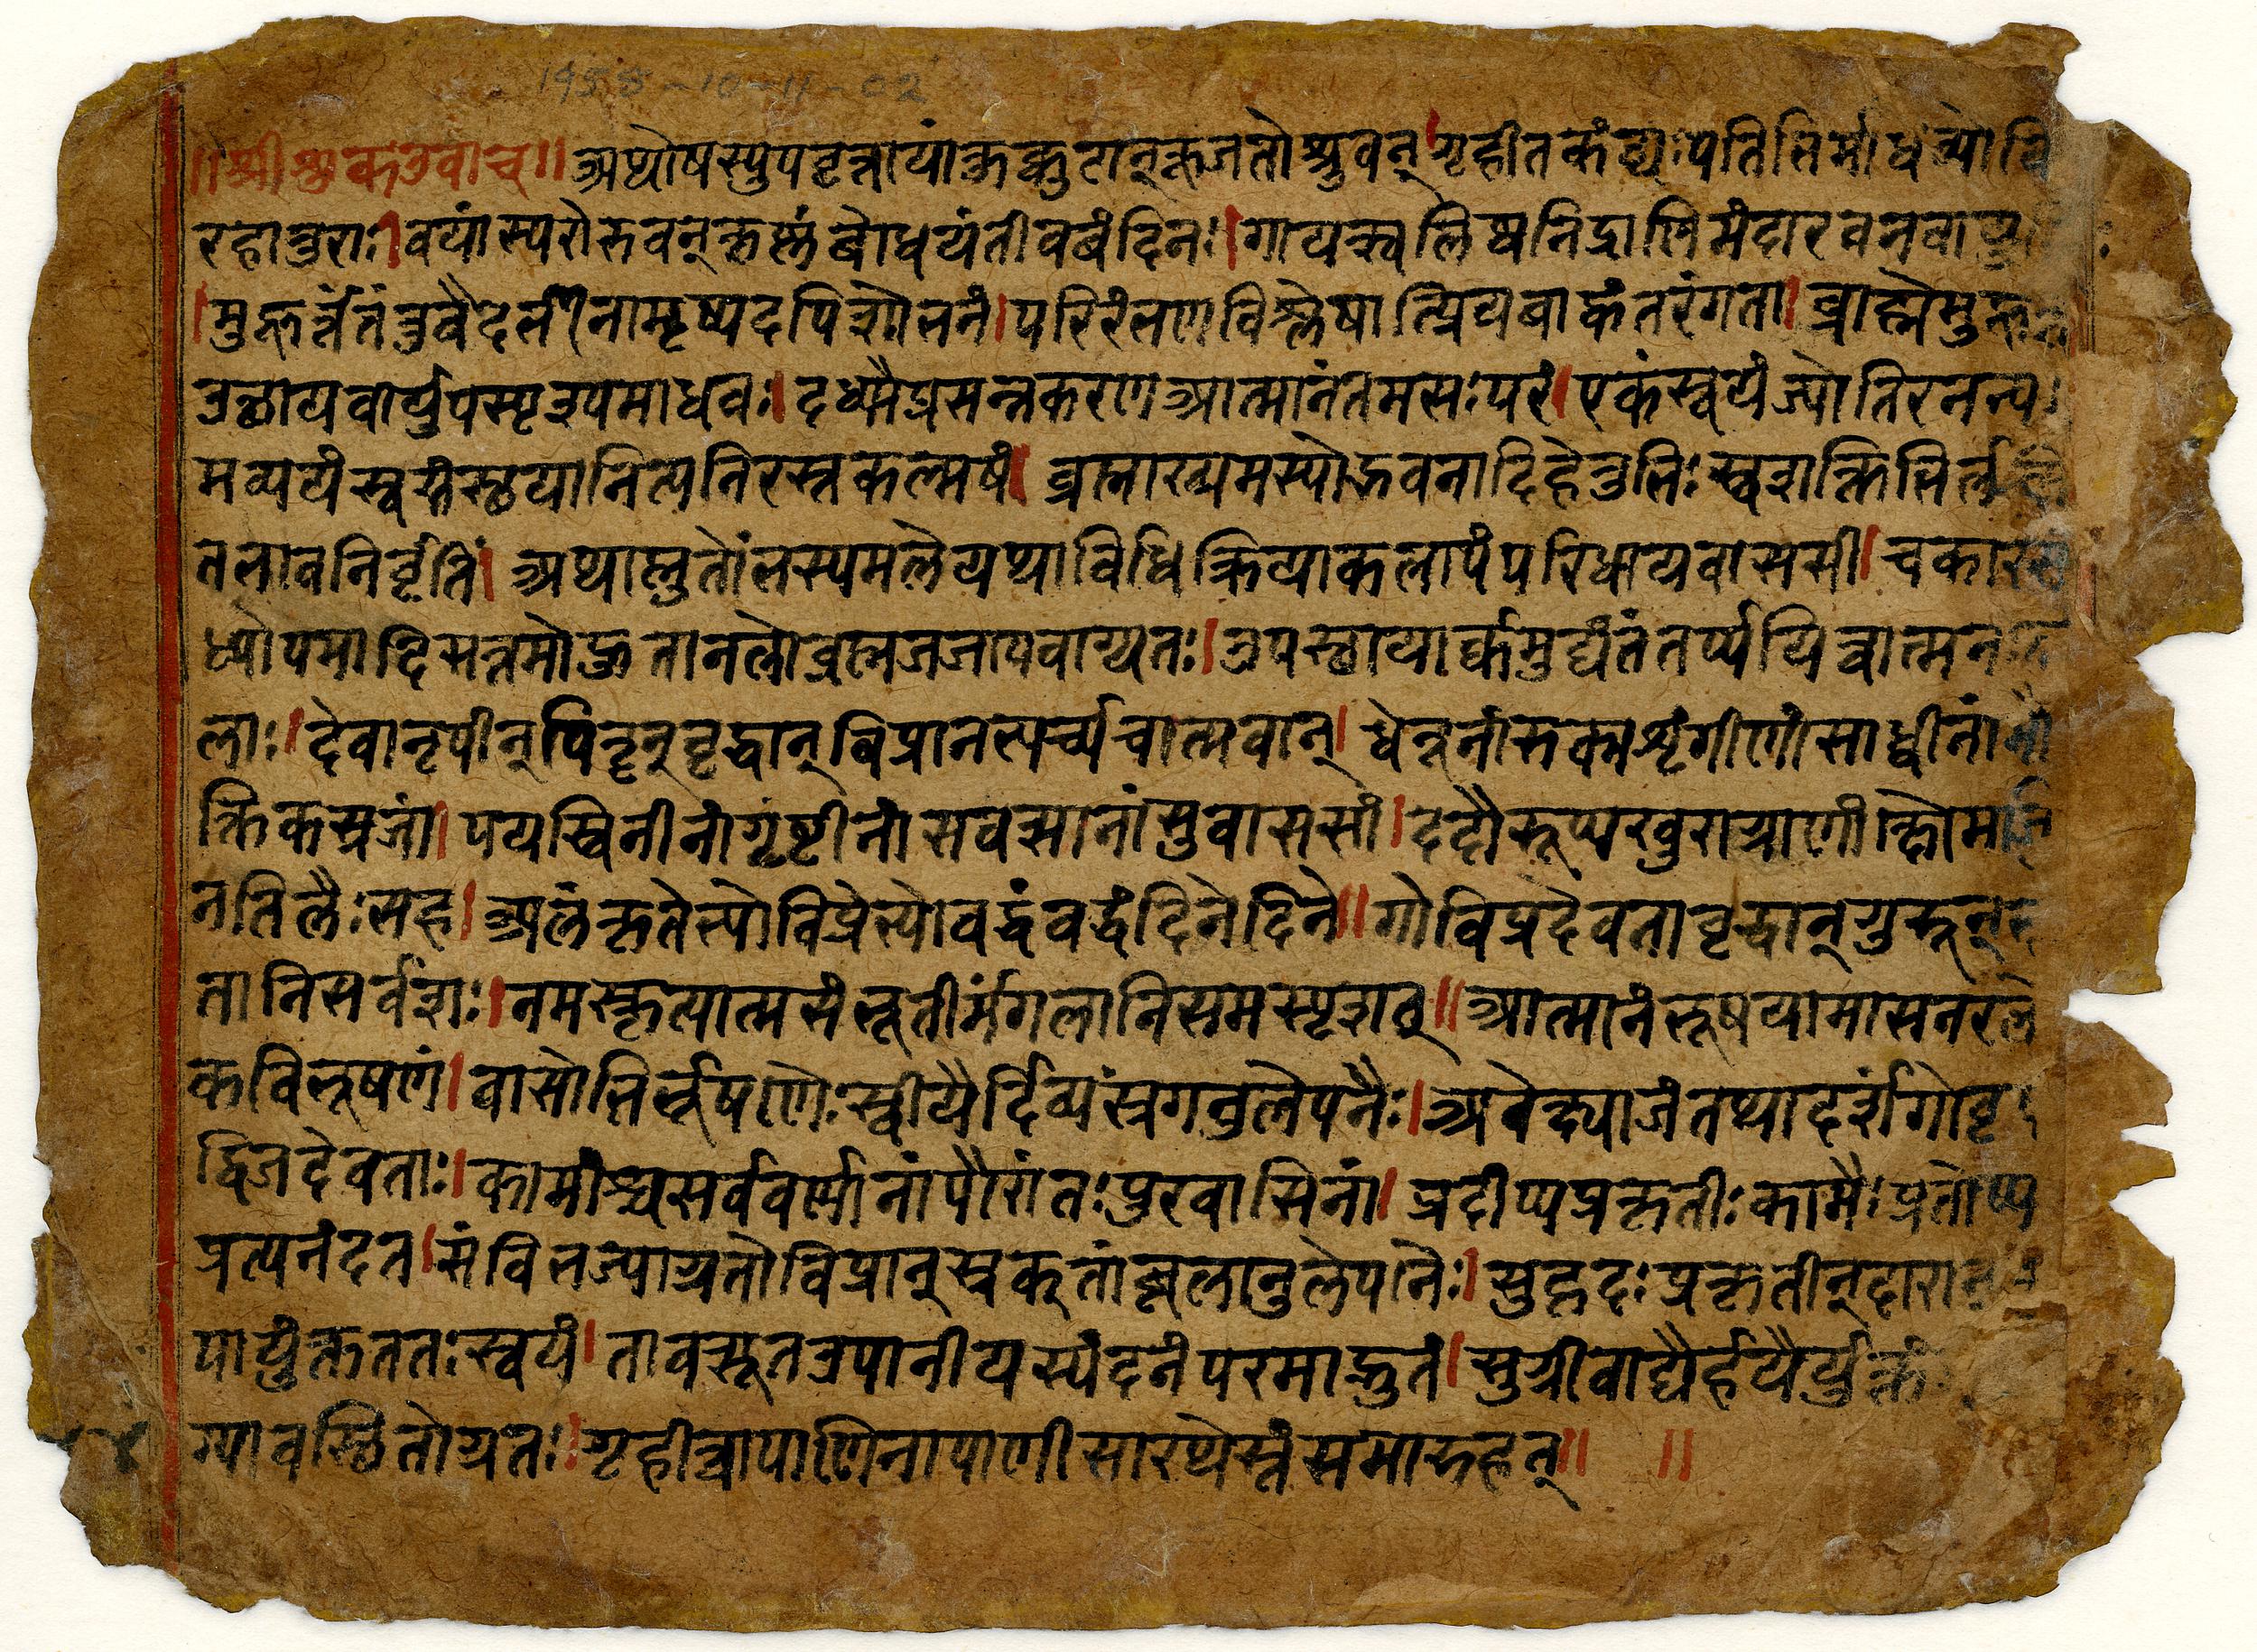 1958-10-11-02
॥श्रीशुकउवाच॥अथोषस्युपवृत्तायांकुक्कुटान्कूजतोशपन्।गृहीतकंठ्यःपतिभिर्माधव्योवि
रहातुराः।वयांस्यरोरुवन्कृष्णंबोधयंतीवबंदिनः।गायत्स्वलिष्वनिद्राणिमंदारवनवायु
।मुहूर्त्तंतंतुवैदर्भीनामृष्यदपिशोभनं।परिरंभणविश्लेषात्प्रियबाह्वंतरंगता।ब्राह्मेमुहूर्त्त
उत्थायवार्युपस्पृश्यमाधवः।दध्यौप्रसन्नकरणआत्मानंतमसःपरं।एकंस्वयंज्योतिरनन्य
मव्ययंस्वसंस्थयानित्यनिरस्तकल्मषं।ब्रह्माख्यमस्योद्भवनादिहेतुभिःस्वशक्तिभिर्ल
तभावनिर्वृतिं।अथाप्लुतोंभस्यमलेयथाविधिक्रियाकलापंपरिधायवाससी।चकारसं
ध्योपमादिसत्तमोहुतानलोब्रह्मजजापवाग्यतः।उपस्थायार्कमुद्यंतंतर्प्पयित्वात्मनः
लाः।देवानृषीन्पितॄन्वृद्धान्विप्रानभ्यर्च्यचात्मवान्।धेनूनांरुक्मशृंगीणांसाध्वीनांमौ
क्तिकस्रजां।पयस्विनीनांगृष्टीनांसवत्सानांसुवाससां।ददौरूप्यखुराग्राणांक्षौमाजि
नतिलैःसह।अलंकृतेभ्योविप्रेभ्योबद्वंबद्वंदिनेदिने॥गोविप्रदेवतावृद्धान्गुरून्
तानिसर्वशः।नमस्कृत्यात्मसंभूतीर्मंगलानिसमस्पृशत्॥आत्मानंभूषयामासनरलो
कविभूषणं।वासोभिर्भूषणैःस्वीयैर्दिव्यंस्रगनुलेपनैः।अवेक्ष्याज्यंतथादर्शंगोवृ
द्विजदेवताः।कामांश्चसर्ववर्णानांपौरांतःपुरवासिनां।प्रदाप्यप्रकृतीःकामैःप्रतोष्य
प्रत्यनंदत।संविभज्याग्रतोविप्रान्स्रक्तांबूलानुलेपनैः।सुहृदःप्रकृतीन्दारान्
पायुंक्तततःस्वयं।तावत्सूतउपानीयस्यंदनंपरमाद्भुतं।सुग्रीवाद्यैर्हयैर्युक्तं
म्यावस्थितोग्रतः।गृहीत्वापाणिनापाणीसारथेस्तंसमारुहत्॥ ॥